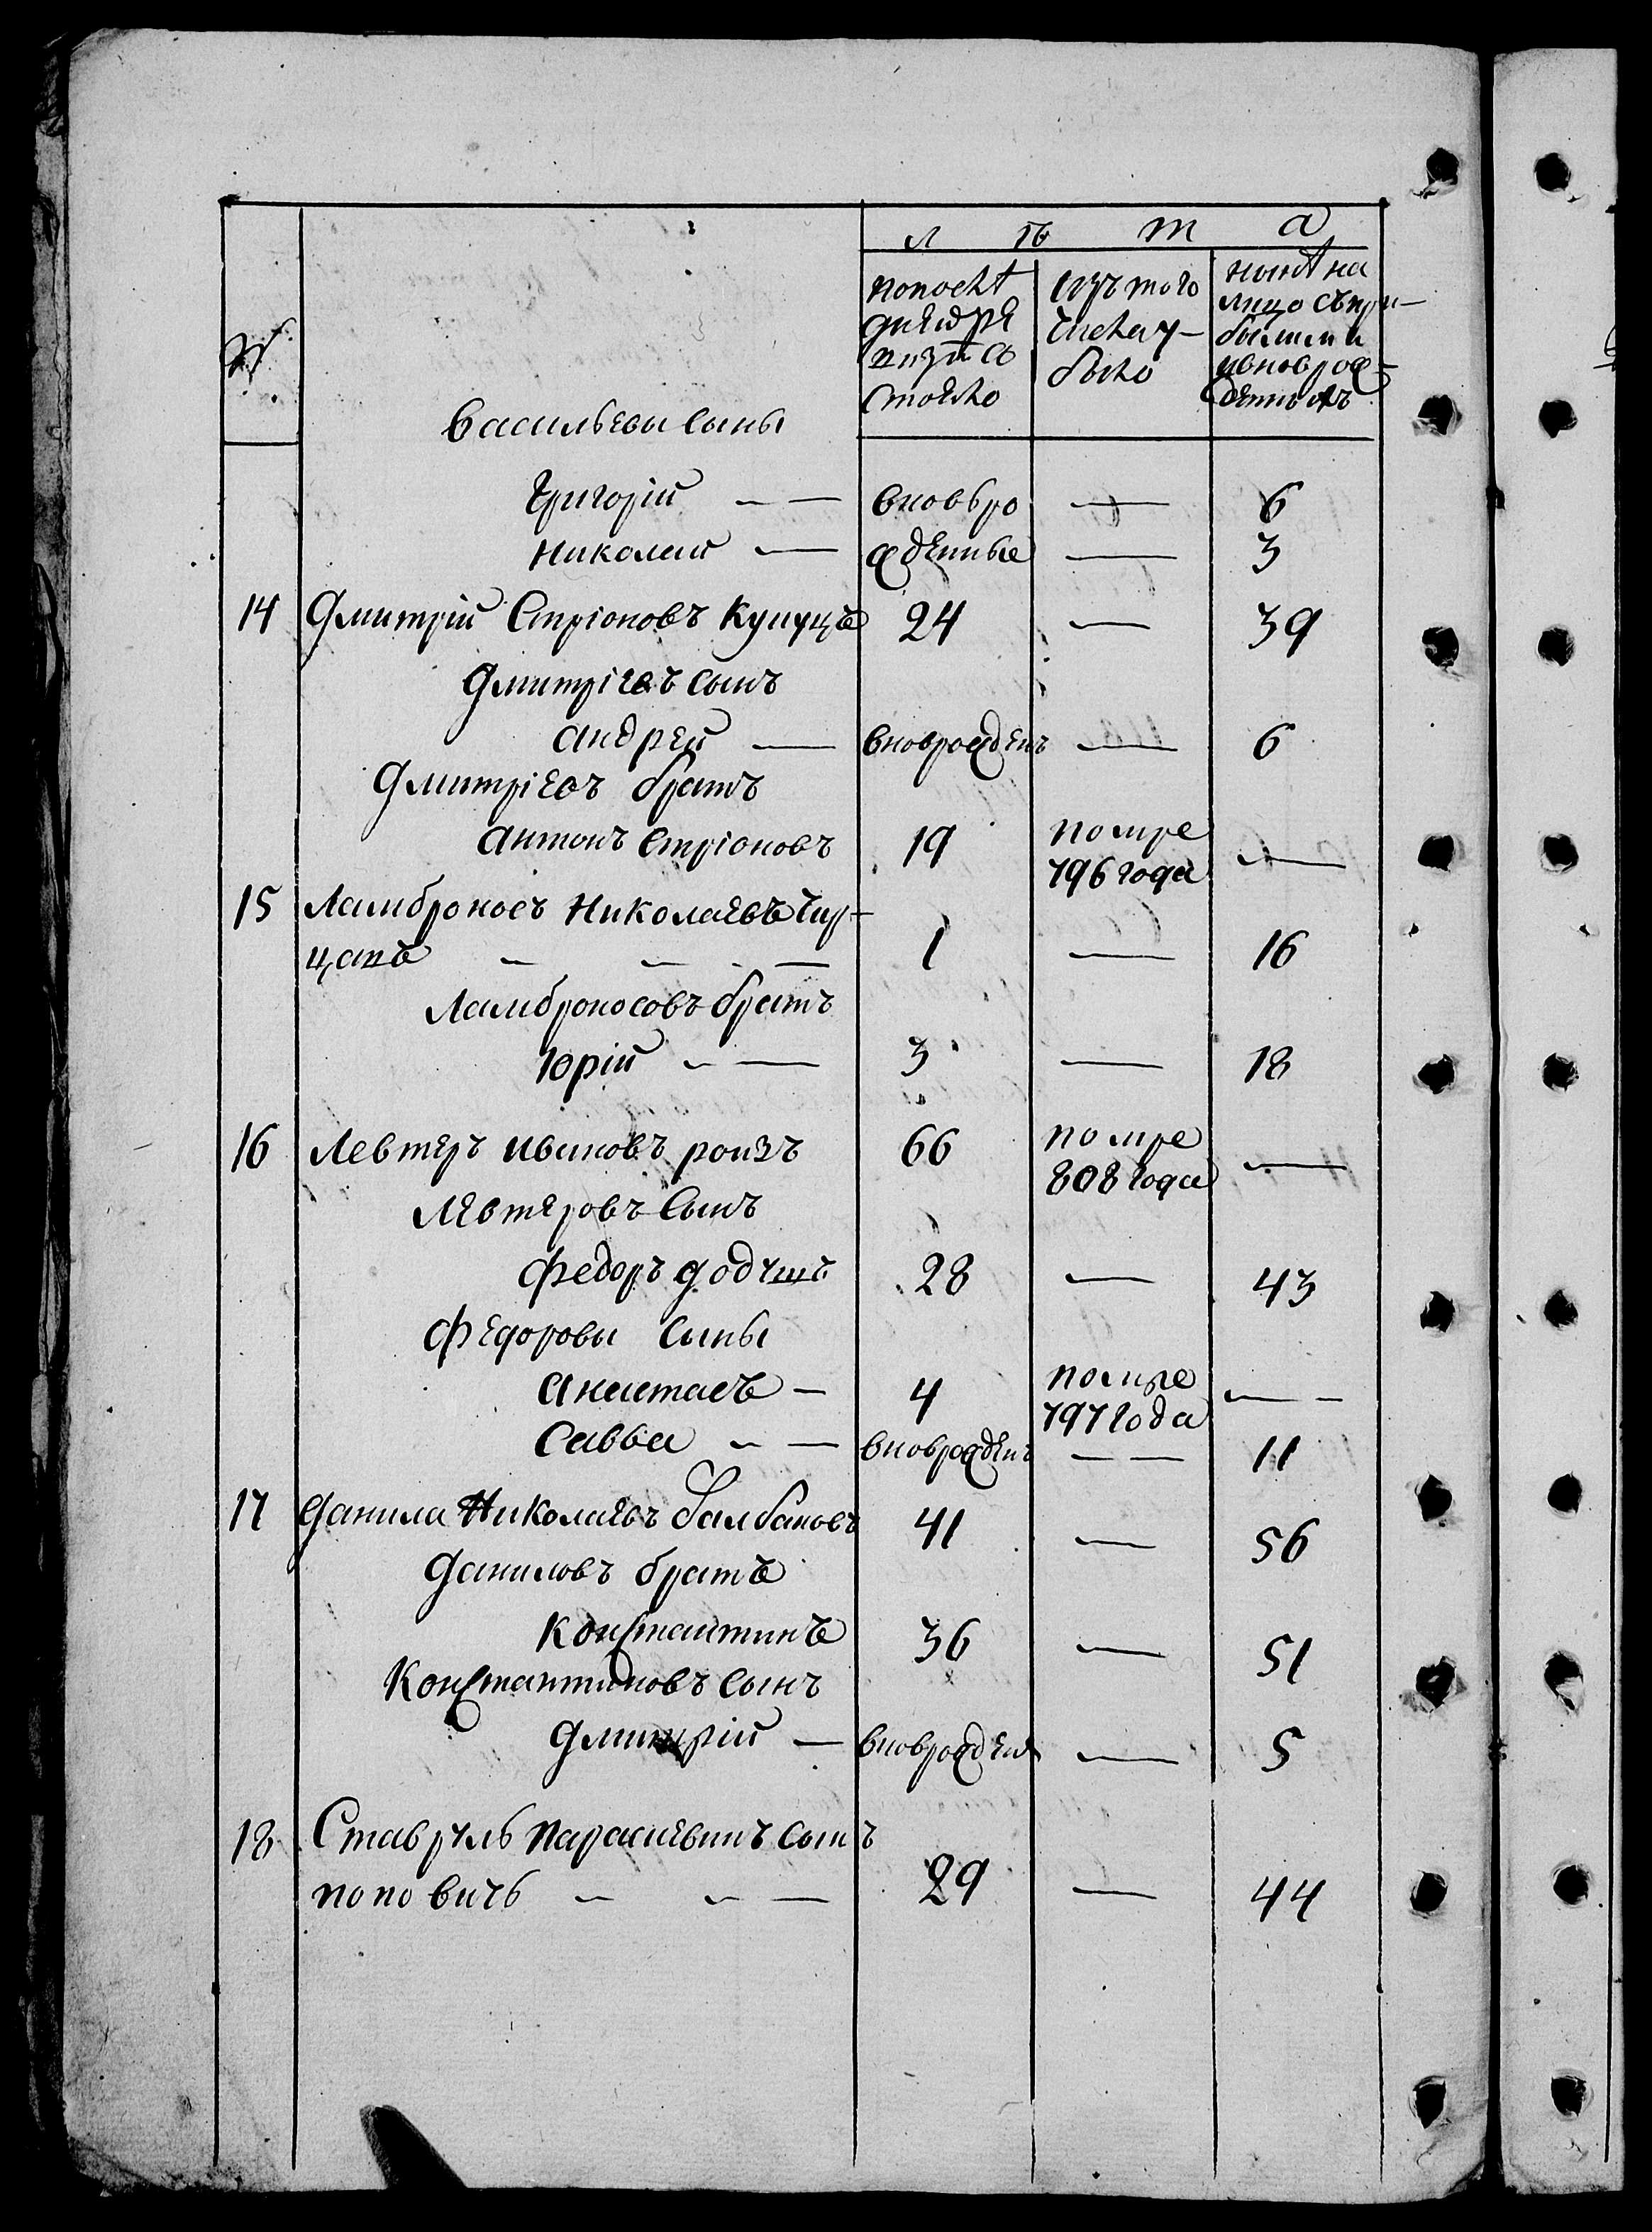 №
Л ѣ т а
по послѣ
дней ре
визіи со
стояло
изъ того
числа у-
было
нынѣ на
лицо съ при-
былыми и
новорож-
денныхъ
Васильевы сыны
Григорій — — вновьро — 6
Николай — жденные — 3
14 Дмитрій Стріоновъ Купуцъ 24 — 39
Дмитріевъ сынъ
Андрей — вноврожденъ — 6
Дмитріевъ братъ
Антонъ Стріоновъ 19 помре 796 года —
15 Ламброносъ Николаевъ Чир-
цанъ — — — 1 — 16
Ламброносовъ братъ
Юрій — — 3 — 18
16 Левтеръ Ивановъ роизъ 66 помре 808 года —
Левтеровъ сынъ
Федоръ 28 — 43
Федоровы сыны
Анастасъ — 4 помре 797 года — —
Савва — — вноврожденъ — — 11
17 Данила Николаевъ Балбановъ 41 — 56
Даниловъ братъ
Константинъ 36 — 51
Константиновъ сынъ
Дмитрій — вноврожден — 5
18 Ставруль Параскевинъ сынъ
поповичь — — — 29 — 44